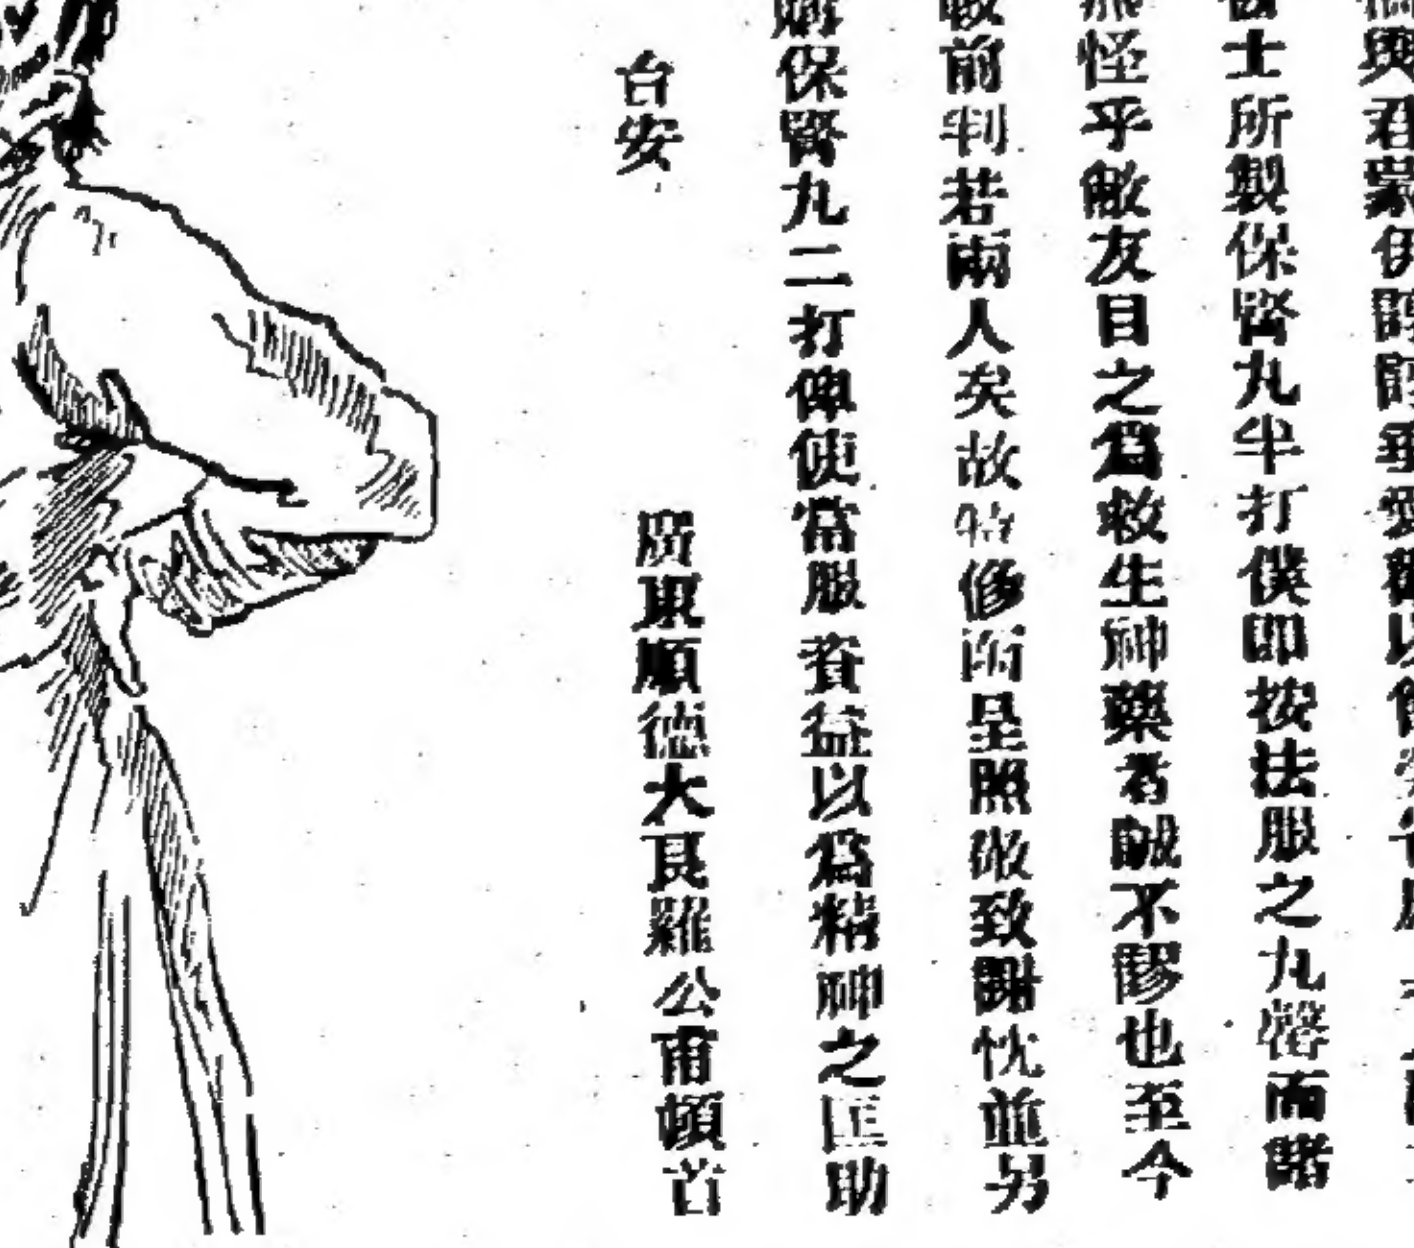 與君蒙伊諄諄垂愛
士所製保腎丸半打僕即按法服之九罄而諸
怪乎敝友目之爲救生神藥者誠不謬也至今
前判若兩人矣故特修函呈照敬致謝忱並另
購保腎丸二打俾使常服資益以爲精神之匡助
台安
廣東順德大良羅公甫頓首